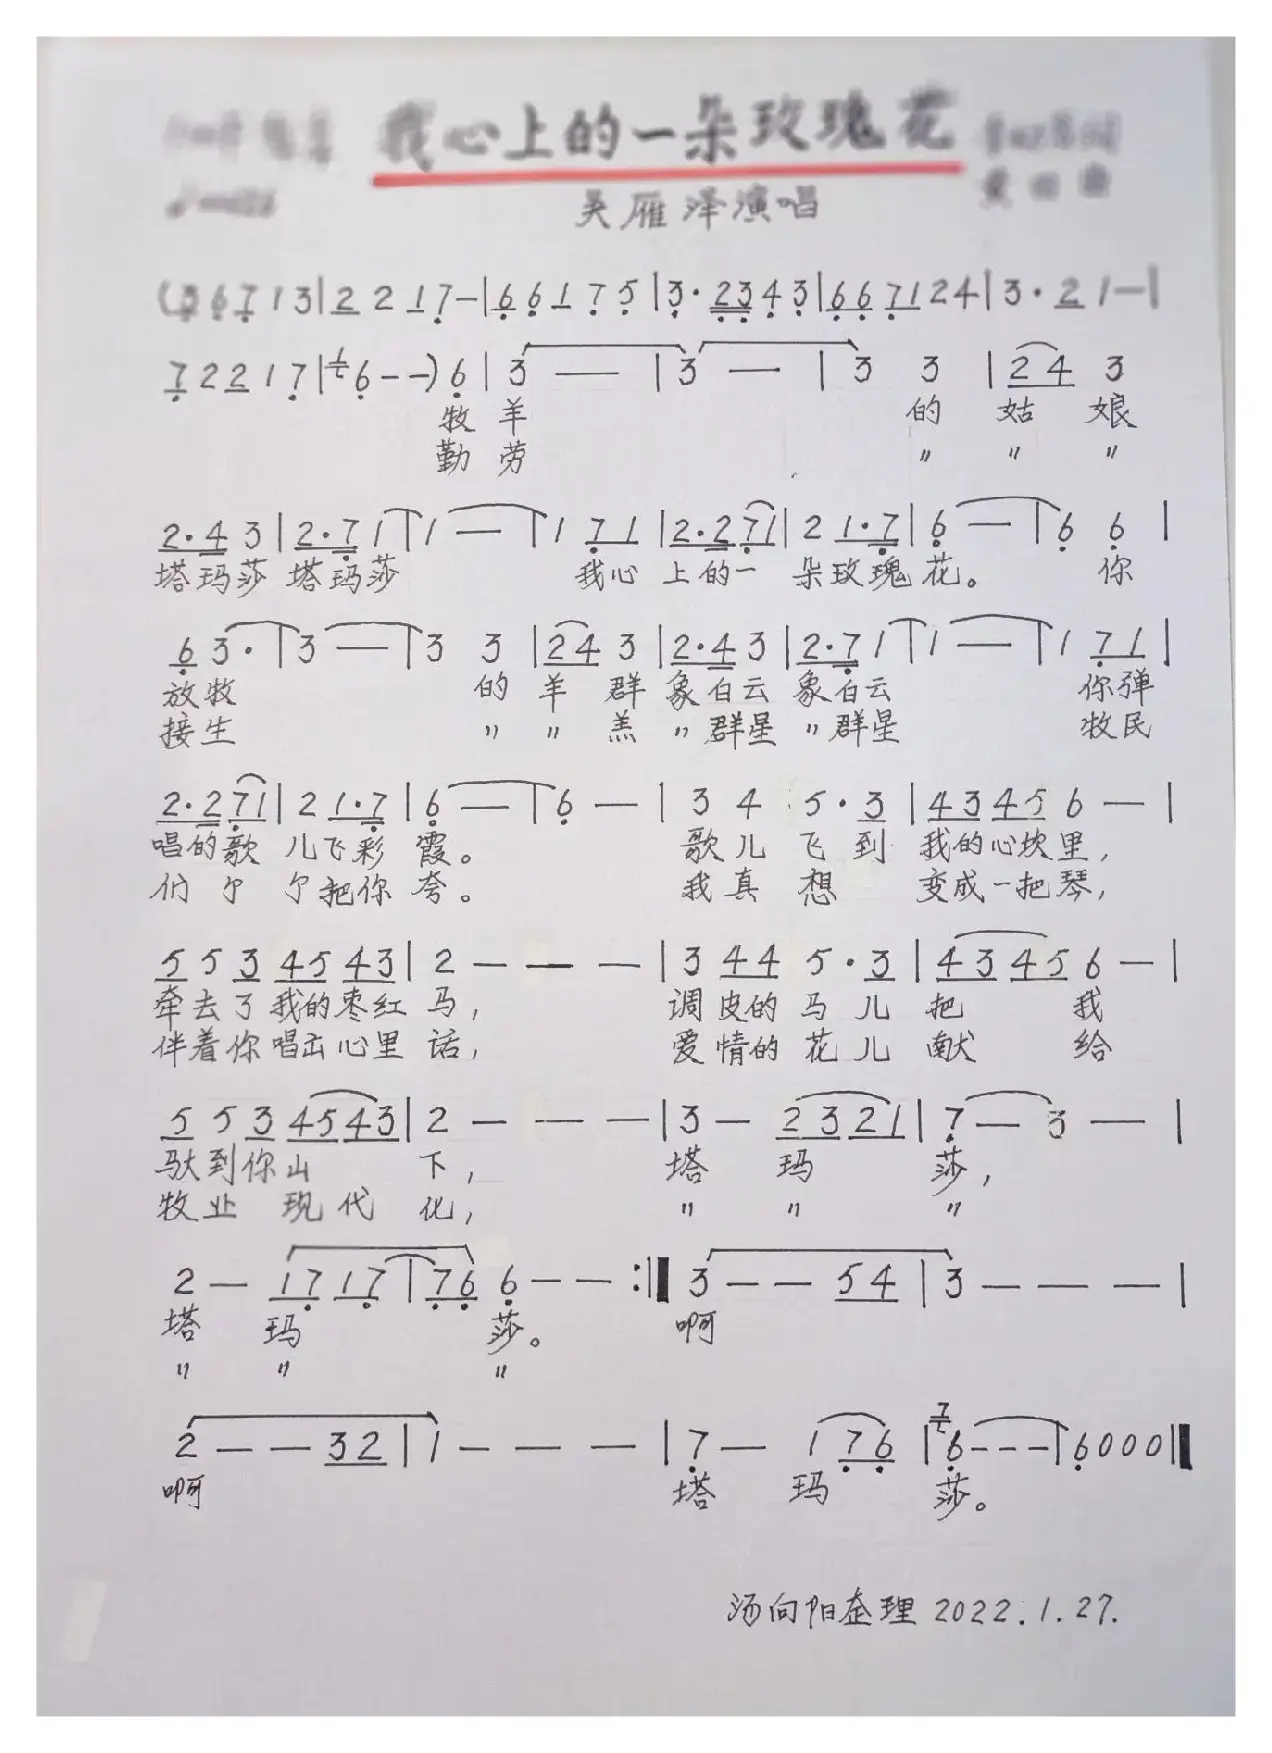 我心上的一朵玫瑰花
吴雁泽演唱
(3 6 7 1 3 | 2 2 1 7 — | 6 6 1 7 5 | 3 · 2 3 4 3 | 6 6 7 1 2 4 | 3 · 2 1 — |
7 2 2 1 7 | 6 - -) 6 | 3 — | 3 — | 3 3 | 2 4 3
牧 羊 的 姑 娘
勤 劳 〃 〃 〃
2 · 4 3 | 2 · 7 1 | 1 — | 1 7 1 | 2 · 2 7 1 | 2 1 · 7 | 6 — | 6 6 |
塔玛莎 塔玛莎 我心 上的一 朵玫瑰花。 你
6 3 · | 3 — | 3 3 | 2 4 3 | 2 · 4 3 | 2 · 7 1 | 1 — | 1 7 1 |
放牧 的 羊 群 象白云 象白云 你弹
接生 〃 〃 羔 〃群星 〃群星 牧民
2 · 2 7 1 | 2 1 · 7 | 6 — | 6 — | 3 4 5 · 3 | 4 3 4 5 6 — |
唱的歌 儿飞彩 霞。 歌儿 飞到 我的心坎里,
们 尔 尔把你 夸。 我真 想 变成一把琴,
5 5 3 4 5 4 3 | 2 — — — | 3 4 4 5 · 3 | 4 3 4 5 6 — |
牵去了我的枣红 马, 调皮的 马儿 把 我
伴着你唱出心里 话, 爱情的 花儿 献 给
5 5 3 4 5 4 3 | 2 — — — | 3 — 2 3 2 1 | 7 — 3 — |
驮到你山 下, 塔 玛 莎,
牧业 现代 化, 〃 〃 〃
2 — 1 7 1 7 | 7 6 6 — — :| 3 — — 5 4 | 3 — — — |
塔 玛 莎。 啊
〃 〃 〃
2 — — 3 2 | 1 — — — | 7 — 1 7 6 | 6 - - - | 6 0 0 0 ||
啊 塔 玛 莎。
汤向阳整理 2022.1.27.